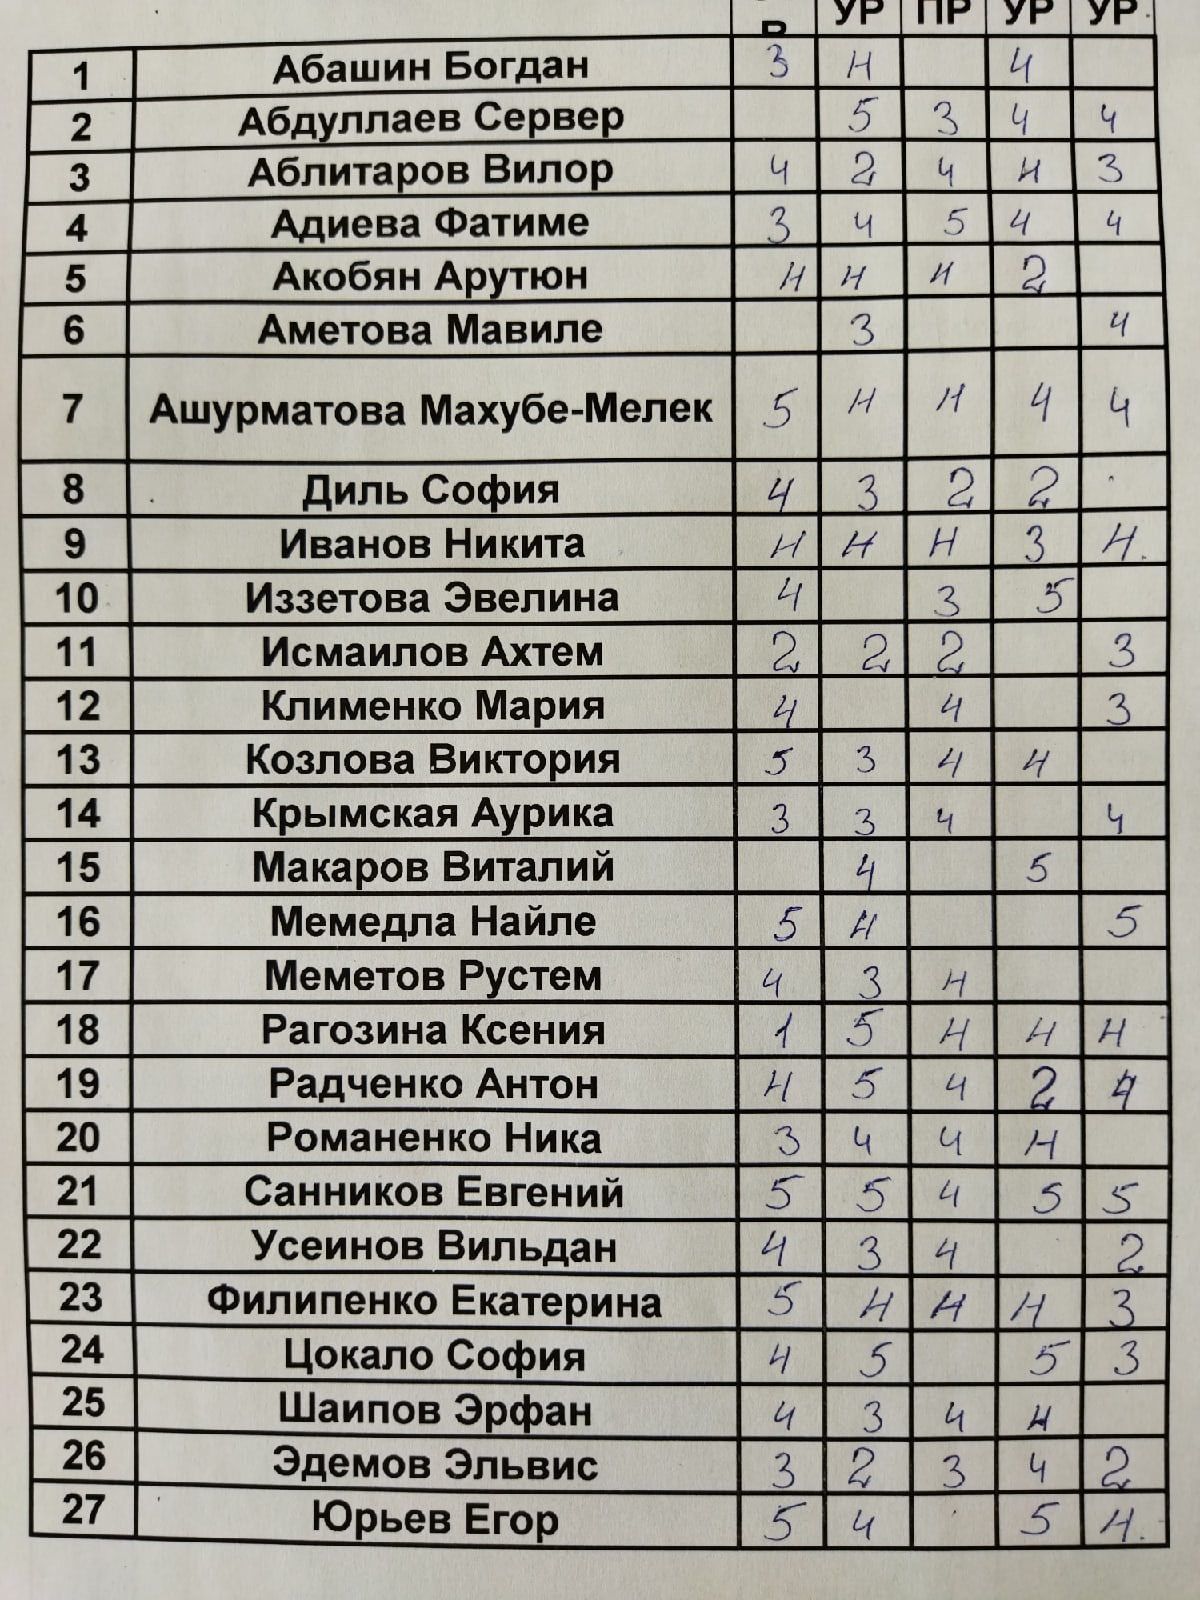 Р УР ПР УР УР
1 Абашин Богдан 3 н 4
2 Абдуллаев Сервер 5 3 4 4
3 Аблитаров Вилор 4 2 4 н 3
4 Адиева Фатиме 3 4 5 4 4
5 Акобян Арутюн н н н 2
6 Аметова Мавиле 3 4
7 Ашурматова Махубе-Мелек 5 н н 4 4
8 Диль София 4 3 2 2
9 Иванов Никита н н н 3 н
10 Иззетова Эвелина 4 3 5
11 Исмаилов Ахтем 2 2 2 3
12 Клименко Мария 4 4 3
13 Козлова Виктория 5 3 4 4
14 Крымская Аурика 3 3 4 4
15 Макаров Виталий 4 5
16 Мемедла Найле 5 4 5
17 Меметов Рустем 4 3 н
18 Рагозина Ксения 1 5 н н н
19 Радченко Антон н 5 4 2 4
20 Романенко Ника 3 4 4 н
21 Санников Евгений 5 5 4 5 5
22 Усеинов Вильдан 4 3 4 2
23 Филипенко Екатерина 5 н н н 3
24 Цокало София 4 5 5 3
25 Шаипов Эрфан 4 3 4 4
26 Эдемов Эльвис 3 2 3 4 2
27 Юрьев Егор 5 4 5 н